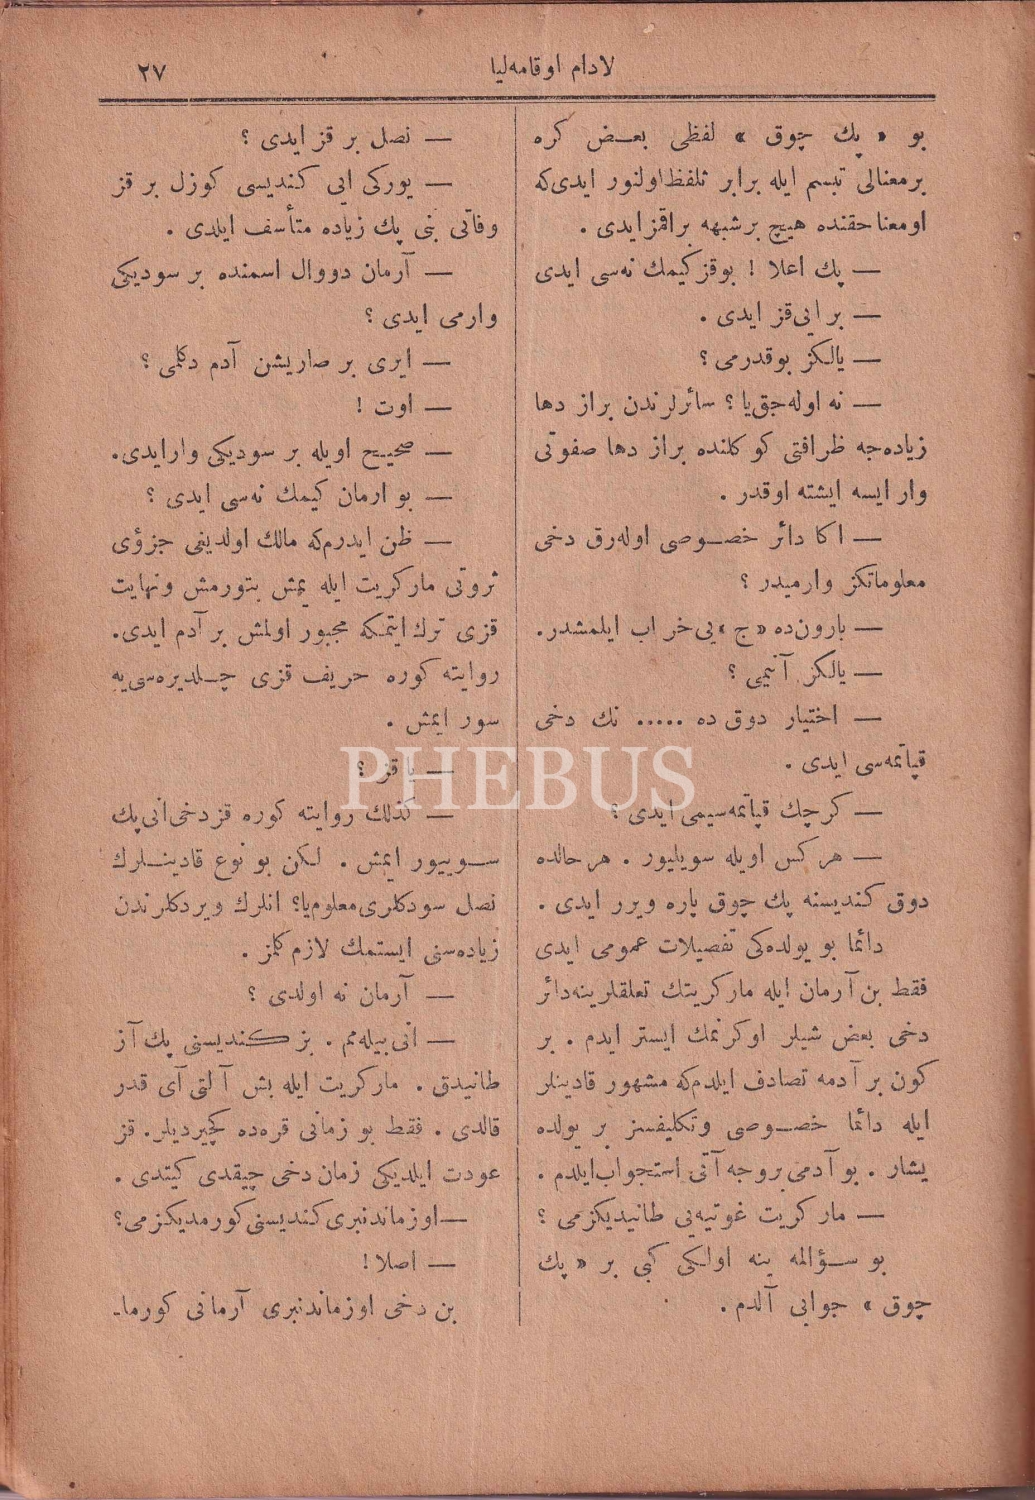 لادام اوقامه‌لیا
٢٧
بو « پك چوق » لفظی بعض كره
برمعنالی تبسم ایله برابر تلفظ اولنور ایدی‌كه
اومعنا حقنده هیچ برشبهه براقمز ایدی .
— پك اعلا ! بوقز كیمك نه‌سی ایدی
— بر ایی قز ایدی .
— یالكز بوقدرمی ؟
— نه اوله‌جق یا ؟ سائرلرندن براز دها
زیاده‌جه ظرافتی كوكلنده براز دها صفوتی
وار ایسه ایشته اوقدر .
— اكا دائر خصوصی اوله‌رق دخی
معلوماتكز وارمیدر ؟
— بارون ده « ج » یی خراب ایلمشدر.
— یالكز آنیمی ؟
— اختیار دوق ده ..... نك دخی
قپاتمه‌سی ایدی .
— كرچك قپاتمه‌سیمی ایدی ؟
— هركس اویله سویلیور . هر حالده
دوق كندیسنه پك چوق پاره ویرر ایدی .
دائما بو یولده‌كی تفصیلات عمومی ایدی
فقط بن آرمان ایله ماركریتك تعلقلرینه دائر
دخی بعض شیلر اوكرنمك ایستر ایدم . بر
كون بر آدمه تصادف ایلدم‌كه مشهور قادینلر
ایله دائما خصوصی وتكلیفسز بر یولده
یشار . بو آدمی بروجه آتی استجواب ایلدم .
— ماركریت غوتیه‌یی طانیدیكزمی ؟
بو سؤالمه ینه اولكی كبی بر « پك
چوق » جوابی آلدم .
— نصل بر قز ایدی ؟
— یوركی ایی كندیسی كوزل بر قز
وفاتی بنی پك زیاده متأسف ایلدی .
— آرمان دووال اسمنده بر سودیكی
وارمی ایدی ؟
— ایری بر صاریشن آدم دكلمی ؟
— اوت !
— صحیح اویله بر سودیكی وارایدی.
— بو ارمان كیمك نه‌سی ایدی ؟
— ظن ایدرم‌كه مالك اولدیغی جزؤی
ثروتی ماركریت ایله یمش بتورمش ونهایت
قزی ترك ایتمكه مجبور اولمش بر آدم ایدی.
روایته كوره حریف قزی چلدیره‌سی‌یه
سور ایمش .
— یا قز ؟
— كذلك روایته كوره قز دخی انی پك
سوییور ایمش . لكن بو نوع قادینلرك
نصل سودكلری معلوم یا؟ انلرك ویردكلرندن
زیاده‌سنی ایستمك لازم كلمز .
— آرمان نه اولدی ؟
— انی بیله‌مم . بز كندیسنی پك آز
طانیدق . ماركریت ایله بش آلتی آی قدر
قالدی . فقط بو زمانی قره‌ده كچیردیلر. قز
عودت ایلدیكی زمان دخی چیقدی كیتدی .
— اوزماندنبری كندیسنی كورمدیكزمی؟
— اصلا!
بن دخی اوزماندنبری آرمانی كورما-
PHEBUS